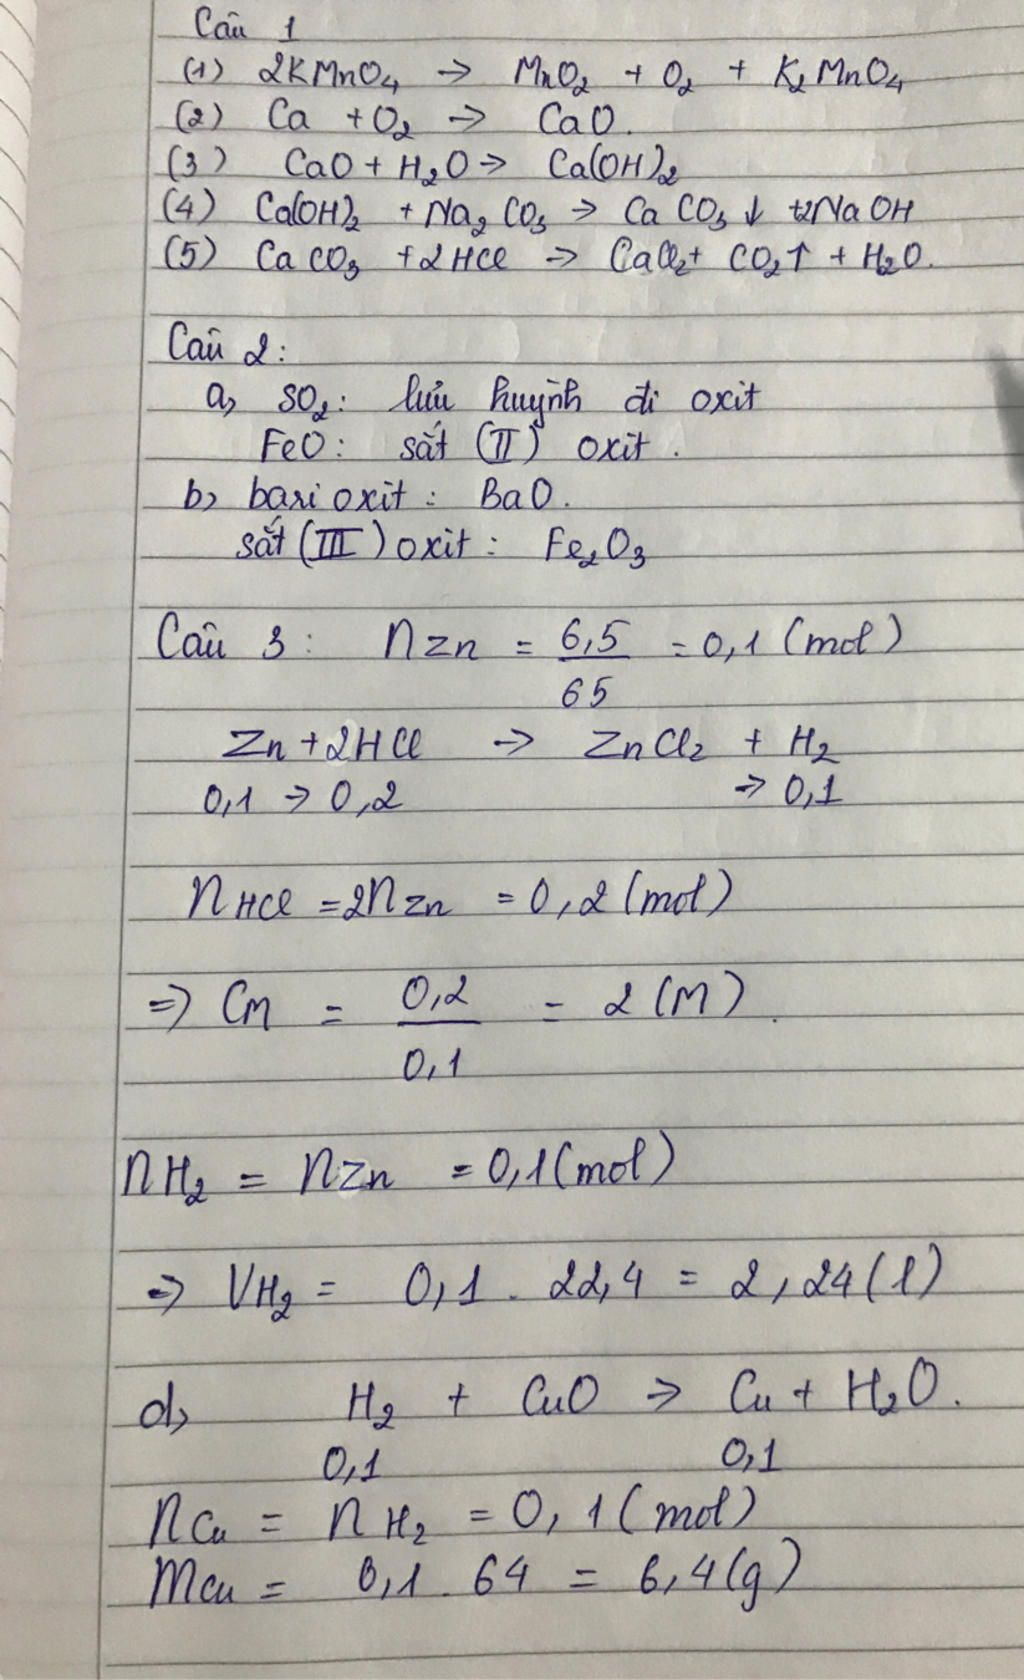 Câu 1
(1) 2KMnO₄ → MnO₂ + O₂ + K₂MnO₄
(2) Ca + O₂ → CaO.
(3) CaO + H₂O → Ca(OH)₂
(4) Ca(OH)₂ + Na₂CO₃ → CaCO₃ ↓ + 2NaOH
(5) CaCO₃ + 2HCl → CaCl₂ + CO₂↑ + H₂O.
Câu 2:
a, SO₂: lưu huỳnh đi oxit
FeO: sắt (II) oxit.
b, bari oxit: BaO.
sắt (III) oxit: Fe₂O₃
Câu 3: nZn = 6,5/65 = 0,1 (mol)
Zn + 2HCl → ZnCl₂ + H₂
0,1 → 0,2 → 0,1
nHCl = 2nZn = 0,2 (mol)
⇒ CM = 0,2/0,1 = 2 (M).
nH₂ = nZn = 0,1 (mol)
⇒ VH₂ = 0,1 . 22,4 = 2,24 (l)
d, H₂ + CuO → Cu + H₂O.
0,1 0,1
nCu = nH₂ = 0,1 (mol)
mCu = 0,1 . 64 = 6,4 (g)